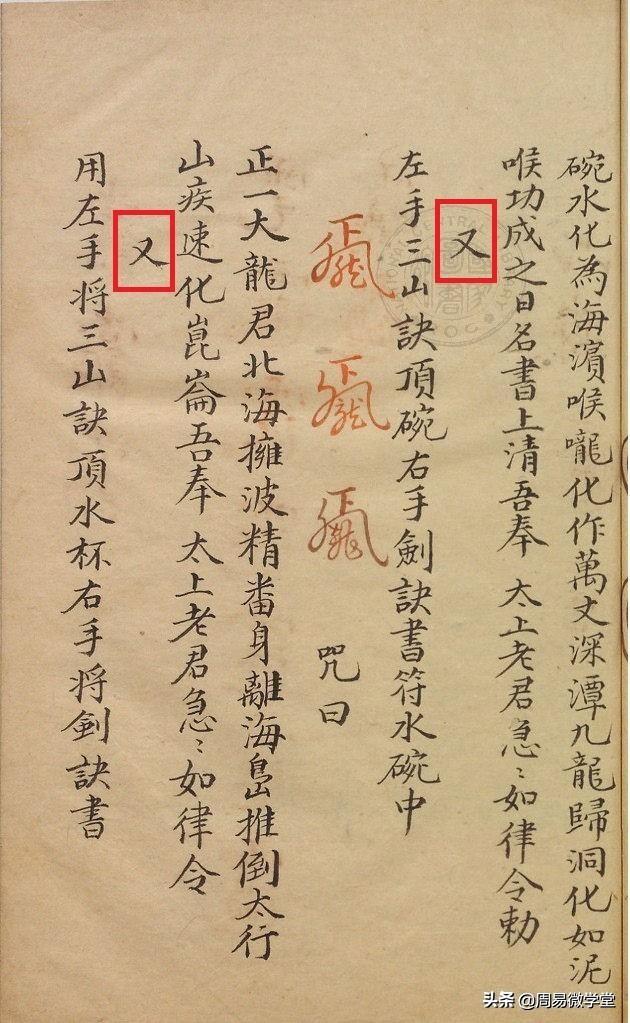 碗水化為海濱喉嚨化作萬丈深潭九龍歸洞化如泥
喉功成之日名書上清吾奉 太上老君急〻如律令勅
又
左手三山訣頂碗右手劍訣書符水碗中
咒曰
正一大龍君北海擁波精畨身離海島推倒太行
山疾速化崑崙吾奉 太上老君急〻如律令
又
用左手将三山訣頂水杯右手将劍訣書
头条 @周易微学堂